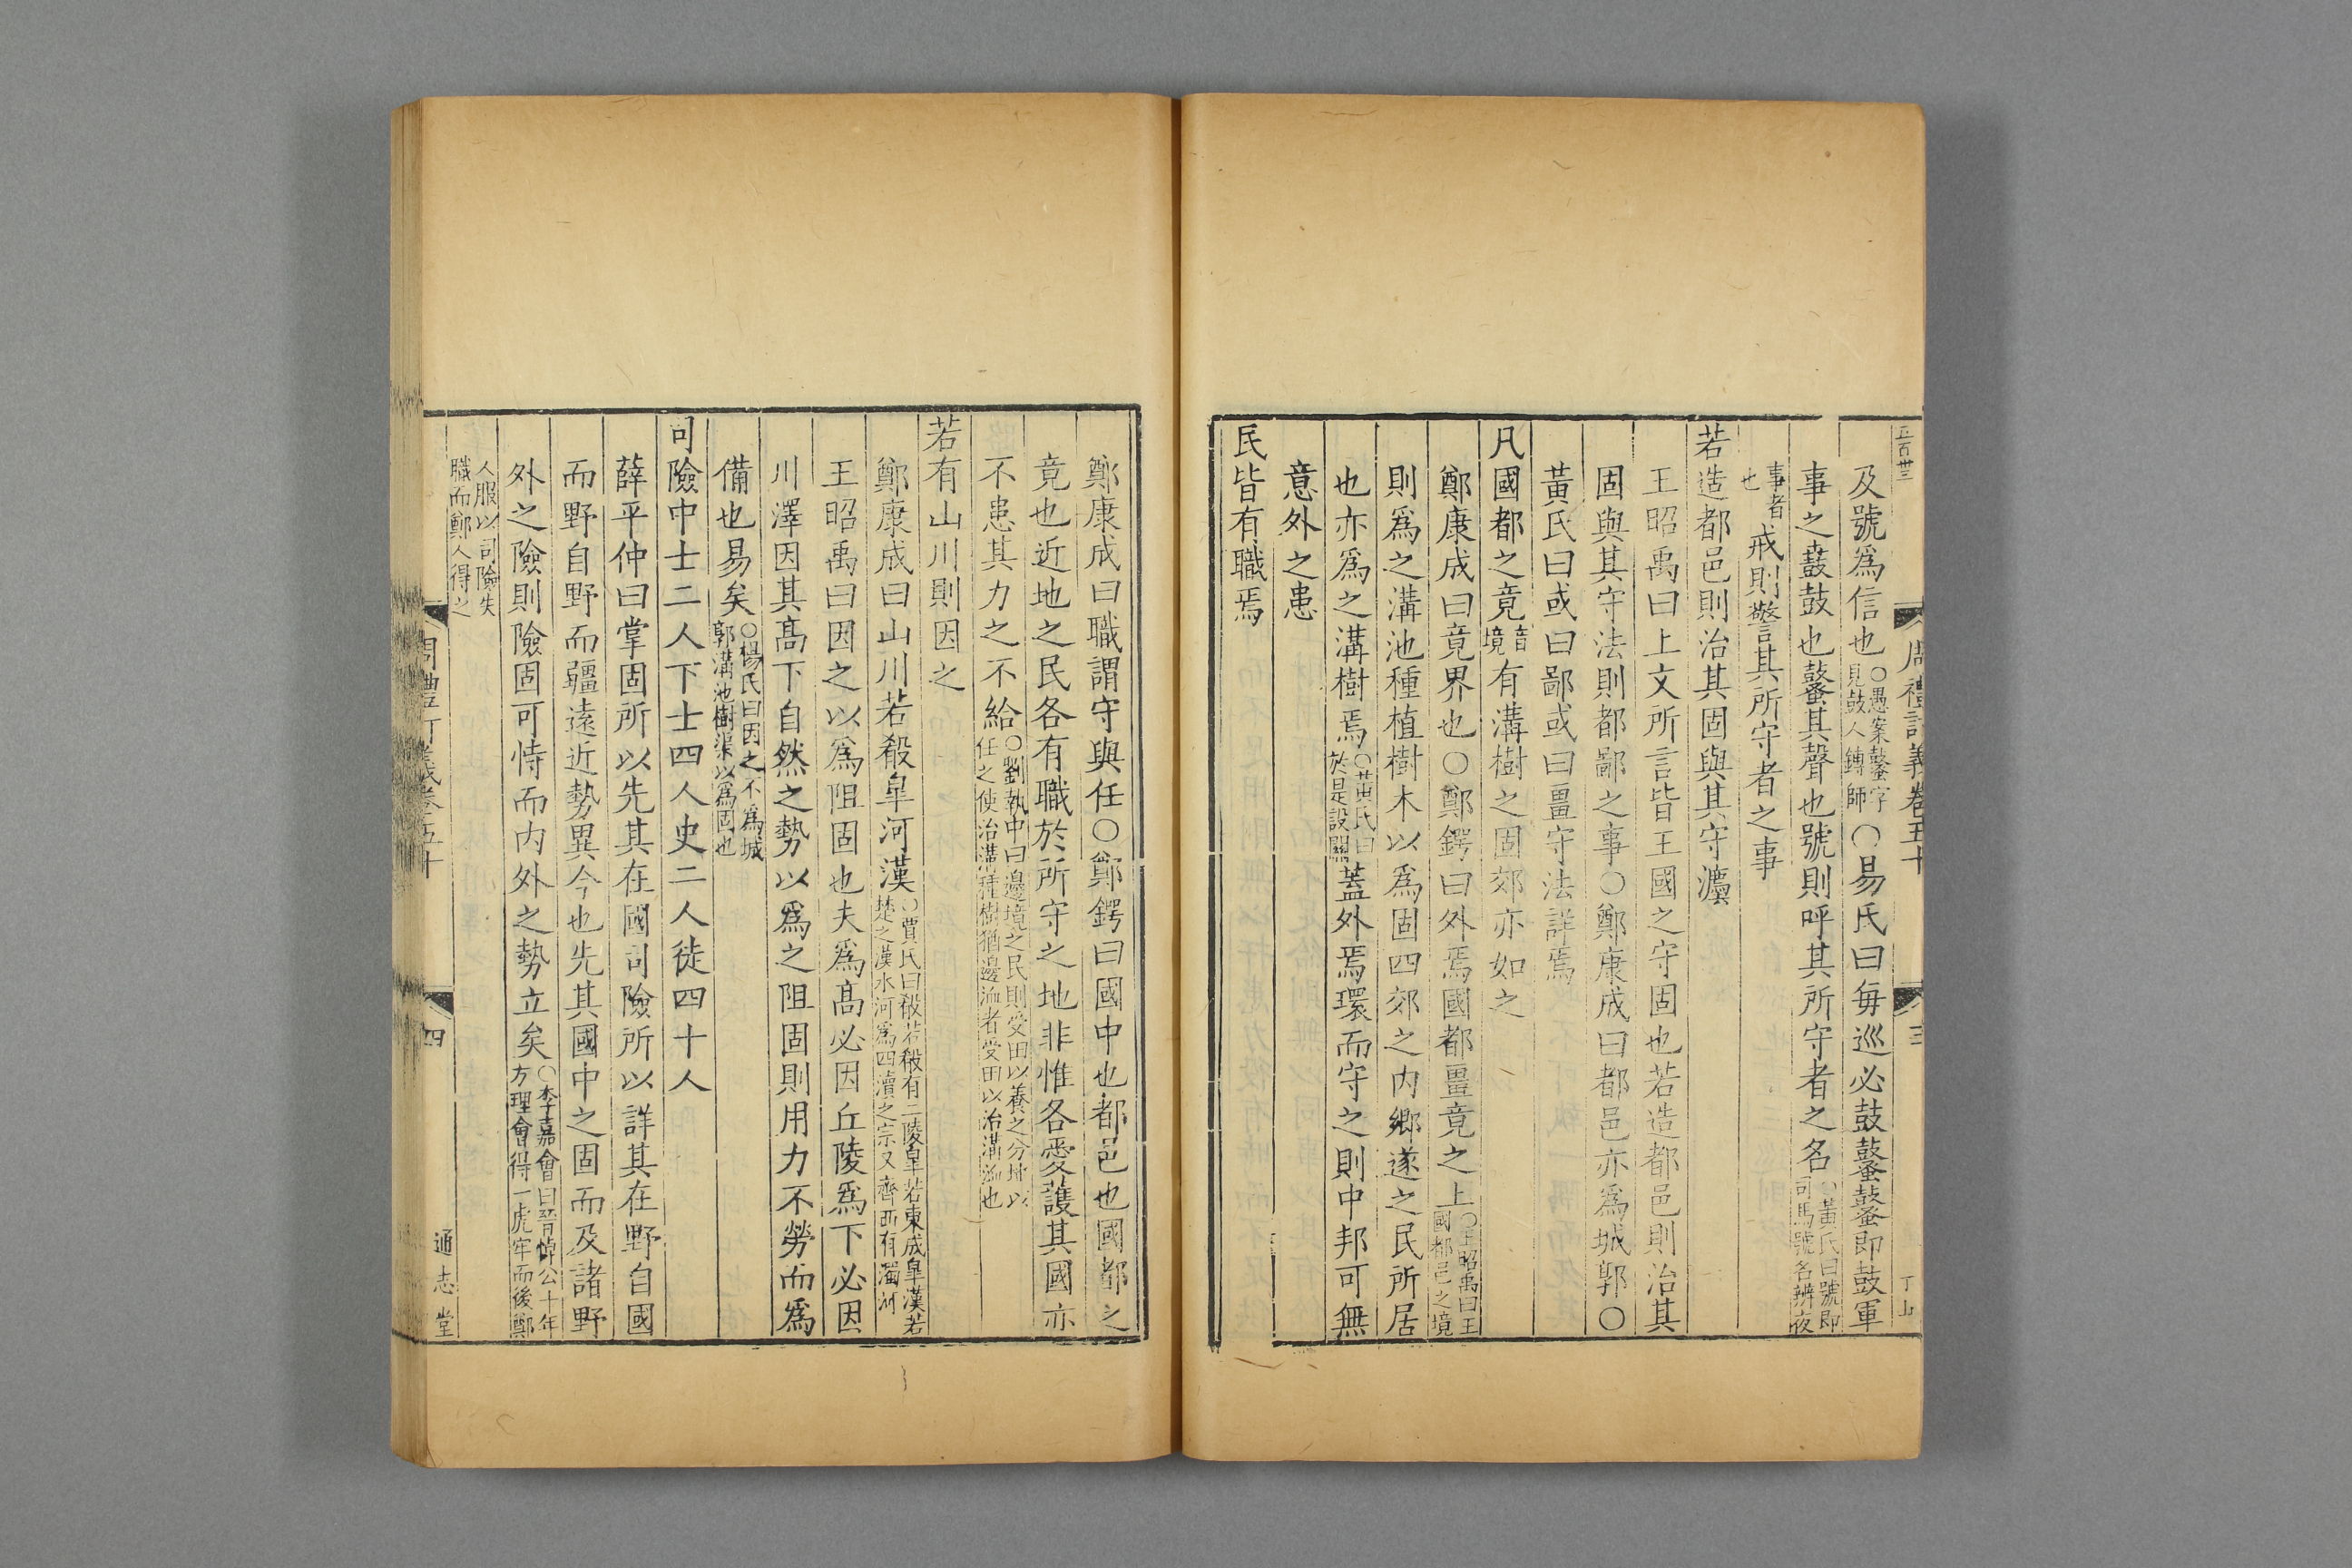 五百卅三
周禮訂義卷五十
三
丁山
及號爲信也○愚案鼜字見鼓人鏄師○易氏曰每巡必鼓鼜鼜即鼓軍
事之鼖鼓也鼜其聲也號則呼其所守者之名○黃氏曰號即司馬號名辨夜
事者也戒則警言其所守者之事
若造都邑則治其固與其守灋
王昭禹曰上文所言皆王國之守固也若造都邑則治其
固與其守法則都鄙之事○鄭康成曰都邑亦爲城郭○
黃氏曰或曰鄙或曰畺守法詳焉
凡國都之竟音境有溝樹之固郊亦如之
鄭康成曰竟界也○鄭鍔曰外焉國都畺竟之上○王昭禹曰王國都邑之境
則爲之溝池種植樹木以爲固四郊之內鄉遂之民所居
也亦爲之溝樹焉○黃氏曰於是設關蓋外焉環而守之則中邦可無
意外之患
民皆有職焉
鄭康成曰職謂守與任○鄭鍔曰國中也都邑也國都之
竟也近地之民各有職於所守之地非惟各愛護其國亦
不患其力之不給○劉執中曰邊境之民則受田以養之分地以任之使治溝種樹猶邊洫者受田以治溝洫也
若有山川則因之
鄭康成曰山川若殽皐河漢○賈氏曰殽若殽有二陵皐若東成皐漢若楚之漢水河爲四瀆之宗又齊西有濁河
王昭禹曰因之以爲阻固也夫爲高必因丘陵爲下必因
川澤因其高下自然之勢以爲之阻固則用力不勞而爲
備也易矣○楊氏曰因之不爲城郭溝池樹渠以爲固也
司險中士二人下士四人史二人徒四十人
薛平仲曰掌固所以先其在國司險所以詳其在野自國
而野自野而疆遠近勢異今也先其國中之固而及諸野
外之險則險固可恃而内外之勢立矣○李嘉會曰晉悼公十年方理會得一虎牢而後鄭
人服以司險失職而鄭人得之
周禮訂義卷五十
四
通志堂